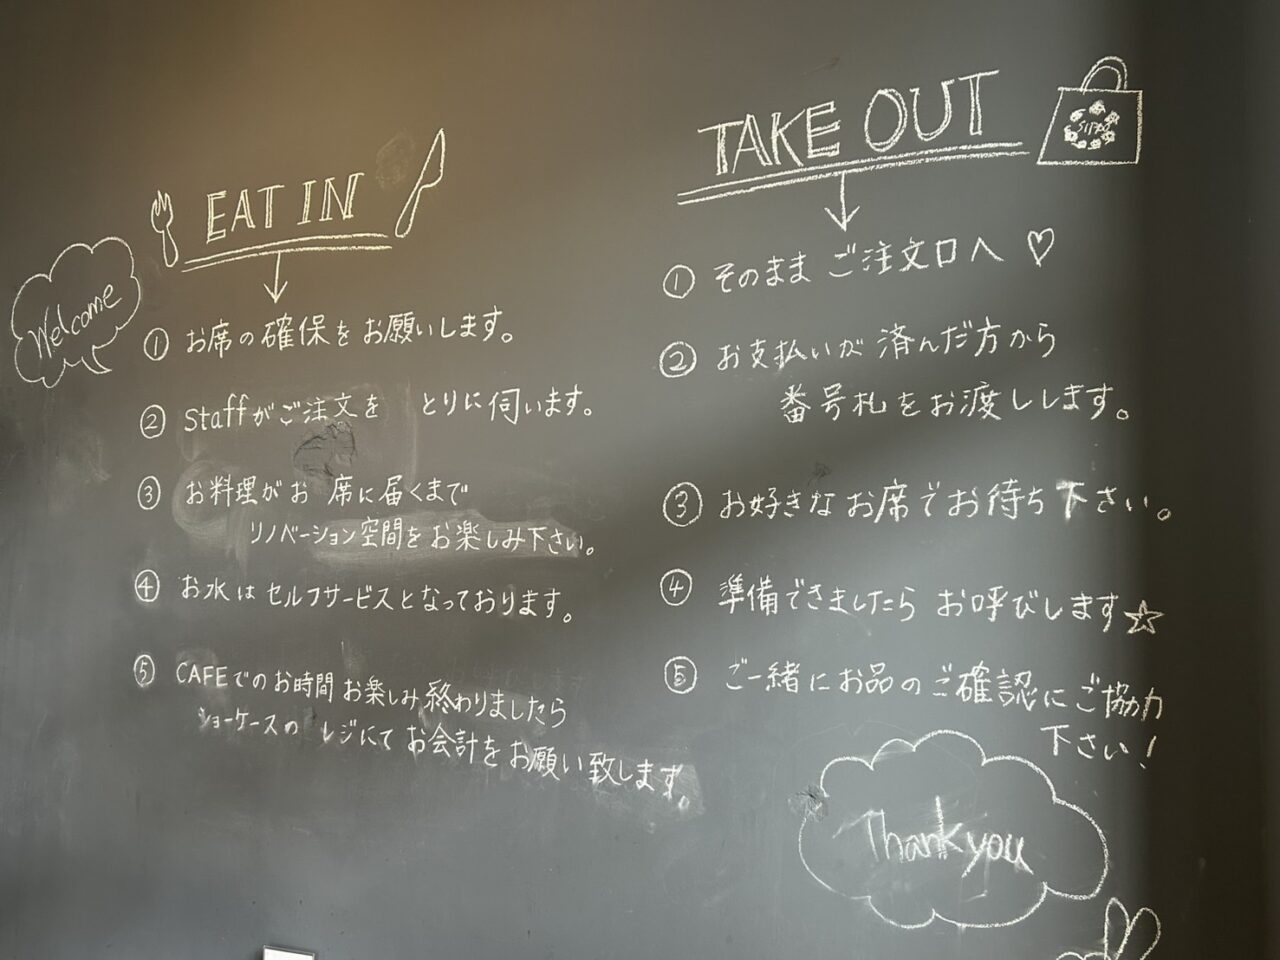 Welcome
EAT IN
① お席の確保をお願いします。
② staffがご注文を とりに伺います。
③ お料理がお 席に届くまで
リノベーション空間をお楽しみ下さい。
④ お水はセルフサービスとなっております。
⑤ CAFEでのお時間お楽しみ終わりましたら
ショーケースの レジにてお会計をお願い致します。
TAKE OUT
① そのまま ご注文口へ♡
② お支払いが済んだ方から
番号札をお渡しします。
③ お好きなお席でお待ち下さい。
④ 準備できましたら お呼びします☆
⑤ ご一緒にお品のご確認にご協力
下さい!
Thank you